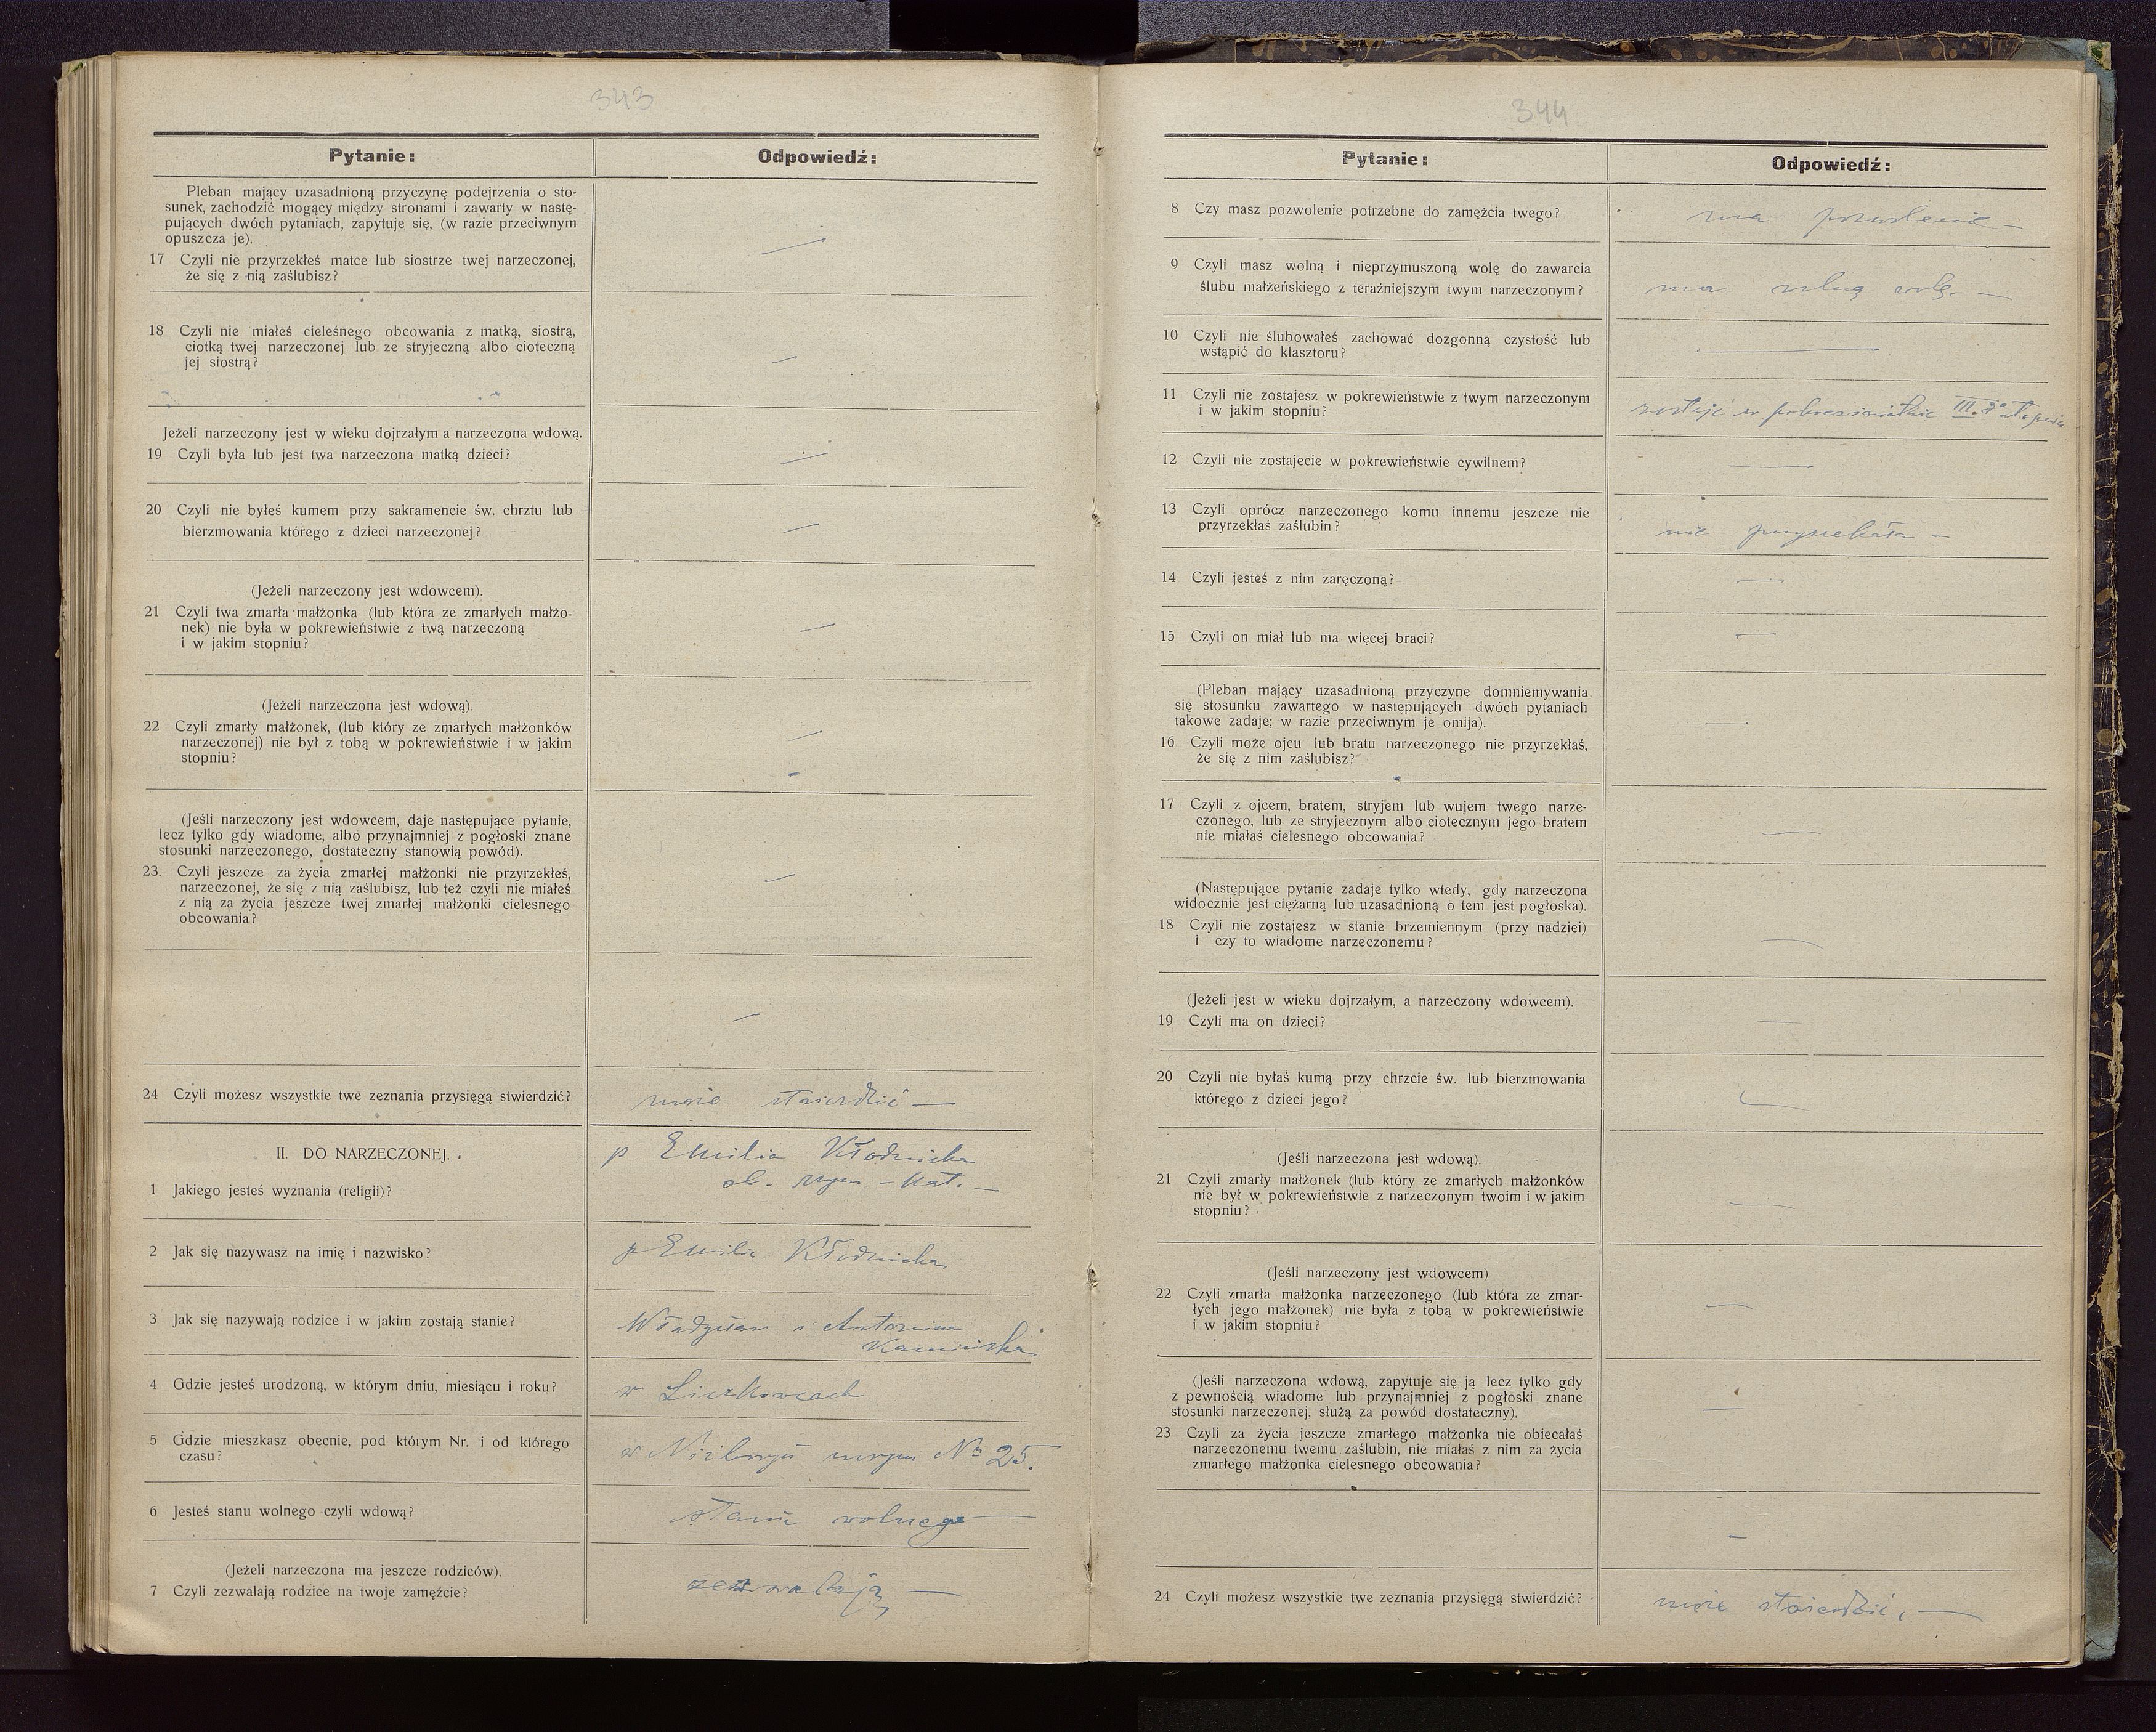 343
Pytanie:
Odpowiedź:
Pleban mający uzasadnioną przyczynę podejrzenia o sto-
sunek, zachodzić mogący między stronami i zawarty w nastę-
pujących dwóch pytaniach, zapytuje się, (w razie przeciwnym
opuszcza je).
17 Czyli nie przyrzekłeś matce lub siostrze twej narzeczonej,
że się z nią zaślubisz?
—
18 Czyli nie miałeś cieleśnego obcowania z matką, siostrą,
ciotką twej narzeczonej lub ze stryjeczną albo cioteczną
jej siostrą?
—
Jeżeli narzeczony jest w wieku dojrzałym a narzeczona wdową.
19 Czyli była lub jest twa narzeczona matką dzieci?
—
20 Czyli nie byłeś kumem przy sakramencie św. chrztu lub
bierzmowania którego z dzieci narzeczonej?
—
(Jeżeli narzeczony jest wdowcem).
21 Czyli twa zmarła małżonka (lub która ze zmarłych małżo-
nek) nie była w pokrewieństwie z twą narzeczoną
i w jakim stopniu?
—
(Jeżeli narzeczona jest wdową).
22 Czyli zmarły małżonek, (lub który ze zmarłych małżonków
narzeczonej) nie był z tobą w pokrewieństwie i w jakim
stopniu?
—
(Jeśli narzeczony jest wdowcem, daje następujące pytanie,
lecz tylko gdy wiadome, albo przynajmniej z pogłoski znane
stosunki narzeczonego, dostateczny stanowią powód).
23. Czyli jeszcze za życia zmarłej małżonki nie przyrzekłeś,
narzeczonej, że się z nią zaślubisz, lub też czyli nie miałeś
z nią za życia jeszcze twej zmarłej małżonki cielesnego
obcowania?
—
—
24 Czyli możesz wszystkie twe zeznania przysięgą stwierdzić?
może stwierdzić —
II. DO NARZECZONEJ.
p Emilia Kłodnicka
1 Jakiego jesteś wyznania (religii)?
ob. rzym - kat. —
2 Jak się nazywasz na imię i nazwisko?
p Emilia Kłodnicka
3 Jak się nazywają rodzice i w jakim zostają stanie?
Władysław i Antonina
Kamińska
4 Gdzie jesteś urodzoną, w którym dniu, miesiącu i roku?
w Liczkowcach
5 Gdzie mieszkasz obecnie, pod którym Nr. i od którego
czasu?
w Niżborgu nowym No 25.
6 Jesteś stanu wolnego czyli wdową?
stanu wolnego —
(Jeżeli narzeczona ma jeszcze rodziców).
7 Czyli zezwalają rodzice na twoje zamężcie?
zezwalają —
344
Pytanie:
Odpowiedź:
8 Czy masz pozwolenie potrzebne do zamężcia twego?
ma pozwolenie —
9 Czyli masz wolną i nieprzymuszoną wolę do zawarcia
ślubu małżeńskiego z teraźniejszym twym narzeczonym?
ma wolną wolę. —
10 Czyli nie ślubowałeś zachować dozgonną czystość lub
wstąpić do klasztoru?
—
11 Czyli nie zostajesz w pokrewieństwie z twym narzeczonym
i w jakim stopniu?
zostaje w pokrewieństwie III. 3o stopnia
12 Czyli nie zostajecie w pokrewieństwie cywilnem?
—
13 Czyli oprócz narzeczonego komu innemu jeszcze nie
przyrzekłaś zaślubin?
nie przyrzekała —
14 Czyli jesteś z nim zaręczoną?
—
15 Czyli on miał lub ma więcej braci?
—
(Pleban mający uzasadnioną przyczynę domniemywania
się stosunku zawartego w następujących dwóch pytaniach
takowe zadaje; w razie przeciwnym je omija).
—
16 Czyli może ojcu lub bratu narzeczonego nie przyrzekłaś,
że się z nim zaślubisz?
17 Czyli z ojcem, bratem, stryjem lub wujem twego narze-
czonego, lub ze stryjecznym albo ciotecznym jego bratem
nie miałaś cielesnego obcowania?
—
(Następujące pytanie zadaje tylko wtedy, gdy narzeczona
widocznie jest ciężarną lub uzasadnioną o tem jest pogłoska).
18 Czyli nie zostajesz w stanie brzemiennym (przy nadziei)
i czy to wiadome narzeczonemu?
—
(Jeżeli jest w wieku dojrzałym, a narzeczony wdowcem).
19 Czyli ma on dzieci?
—
20 Czyli nie byłaś kumą przy chrzcie św. lub bierzmowania
którego z dzieci jego?
—
(Jeśli narzeczona jest wdową).
21 Czyli zmarły małżonek (lub który ze zmarłych małżonków
nie był w pokrewieństwie z narzeczonym twoim i w jakim
stopniu?
—
(Jeśli narzeczony jest wdowcem)
22 Czyli zmarła małżonka narzeczonego (lub która ze zmar-
łych jego małżonek) nie była z tobą w pokrewieństwie
i w jakim stopniu?
—
(Jeśli narzeczona wdową, zapytuje się ją lecz tylko gdy
z pewnością wiadome lub przynajmniej z pogłoski znane
stosunki narzeczonej, służą za powód dostateczny).
—
23 Czyli za życia jeszcze zmarłego małżonka nie obiecałaś
narzeczonemu twemu zaślubin, nie miałaś z nim za życia
zmarłego małżonka cielesnego obcowania?
—
24 Czyli możesz wszystkie twe zeznania przysięgą stwierdzić?
może stwierdzić, —